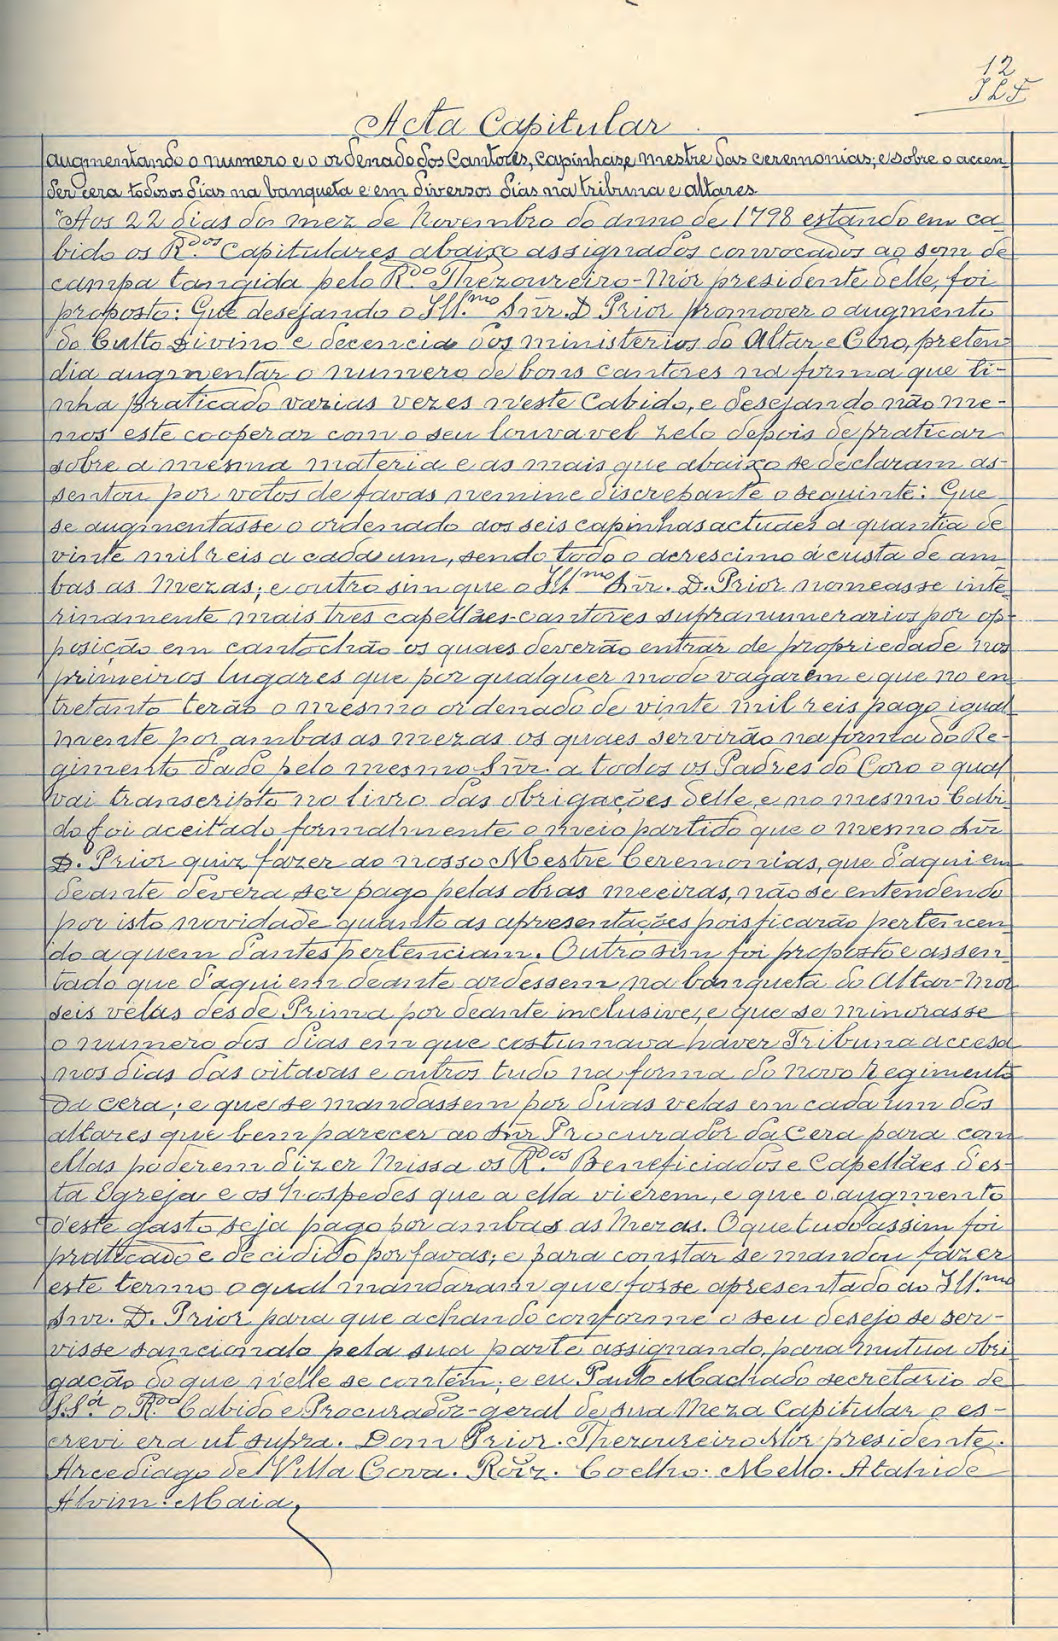 12
J L F
Acta Capitular
augmentando o numero e o ordenado dos Cantores, capinhas, e mestre das ceremonias; e sobre o accen-
der cera todos os dias na banqueta e em diversos dias na tribuna e altares
Aos 22 dias do mez de Novembro do anno de 1798 estando em ca-
bido os R.dos Capitulares abaixo assignados convocados ao som de
campa tangida pelo R.do Thezoureiro-Mór presidente delle, foi
proposto: Que desejando o Ill.mo Snr. D. Prior promover o augmento
do Culto Divino e decencia dos ministerios do Altar e Coro, preten-
dia augmentar o numero de bons cantores na forma que ti-
nha praticado varias vezes n'este Cabido, e desejando não me-
nos este cooperar com o seu louvavel zelo depois de praticar
sobre a mesma materia e as mais que abaixo se declaram as-
sentou por votos de favas nemine discrepante o seguinte: Que
se augmentasse o ordenado aos seis capinhas actuaes a quantia de
vinte mil reis a cada um, sendo todo o acrescimo á custa de am-
bas as Mezas; e outro sim que o Ill.mo Snr. D. Prior nomeasse inte-
rinamente mais tres capellães-cantores supranumerarios por op-
posição em cantochão os quaes deverão entrar de propriedade nos
primeiros lugares que por qualquer modo vagarem e que no en-
tretanto terão o mesmo ordenado de vinte mil reis pago igual-
mente por ambas as mezas os quaes servirão na forma do Re-
gimento dado pelo mesmo Snr. a todos os Padres do Coro o qual
vai transcripto no livro das obrigações delle, e no mesmo Cabi-
do foi aceitado formalmente o meio partido que o mesmo Snr
D. Prior quiz fazer ao nosso Mestre Ceremonias, que d'aqui em
deante devera ser pago pelas obras meeiras, não se entendendo
por isto novidade quanto as apresentações pois ficarão pertencen-
do a quem d'antes pertenciam. Outro sim foi proposto e assen-
tado que d'aqui em deante ardessem na banqueta do Altar-Mor
seis velas desde Prima por deante inclusive, e que se minorasse
o numero dos dias em que costumava haver Tribuna accesa
nos dias das oitavas e outros tudo na forma do novo Regimento
da cera; e que se mandassem por duas velas em cada um dos
altares que bem parecer ao Snr Procurador da Cera para com
ellas poderem dizer Missa os R.dos Beneficiados e Capellães d'es-
ta Egreja e os hospedes que a ella vierem, e que o augmento
d'este gasto seja pago por ambas as Mezas. O que tudo assim foi
praticado e decidido por favas; e para constar se mandou fazer
este termo o qual mandaram que fosse apresentado ao Ill.mo
Snr. D. Prior para que achando conforme o seu desejo se ser-
visse sancional-o pela sua parte assignando, para mutua obri-
gação do que n'elle se contém; e eu Paulo Machado secretario de
S.Sa. o R.do Cabido e Procurador-geral de sua Meza Capitular o es-
crevi era ut supra. Dom Prior. Thezoureiro Mor presidente.
Arcediago de Villa Cova. Roiz. Coelho. Mello. Atahide
Alvim. Maia,